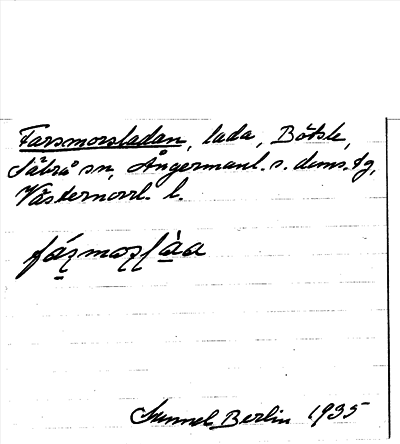 Farsmorsladan, lada, Bötsle,
Säbrå sn, Ångermanl. s. doms. fg,
Västernorrl. l.
Sunnel Berlin 1935